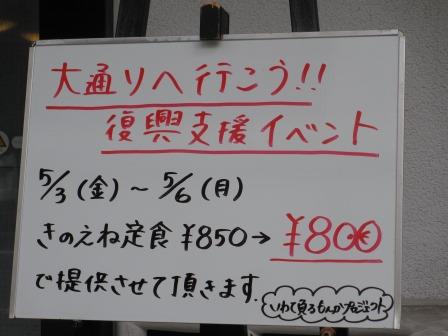 大通りへ行こう!!
復興支援イベント
5/3(金)～5/6(月)
きのえね定食¥850→¥800
で提供させて頂きます.
いわて負けるもんかプロジェクト